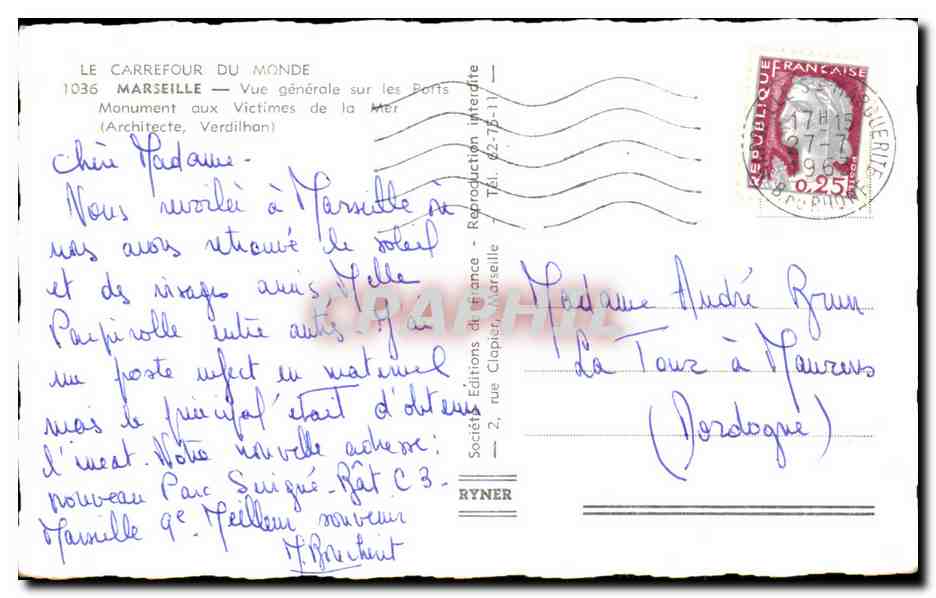 LE CARREFOUR DU MONDE
1036 MARSEILLE — Vue générale sur les Ports
Monument aux Victimes de la Mer
(Architecte, Verdilhan)
Chère Madame -
Nous revoilà à Marseille où
nous avons retrouvé le soleil
et des visages amis, Melle
entre autres. J'ai
un poste infect en matériel
mais le principal était d'obtenir
l'ineat. Notre nouvelle adresse :
nouveau Parc Sévigné - Bât. C3 -
Marseille 9e. Meilleur souvenir
Société Éditions de France - Reproduction interdite
— 2, rue Clapier, Marseille - Tél. 62-75-11 —
RYNER
RÉPUBLIQUE FRANÇAISE
0,25
17H15
27-7
196
B. DU RHONE
Madame André Brun
La Tour à Maurens
(Dordogne)
CPAPHIL